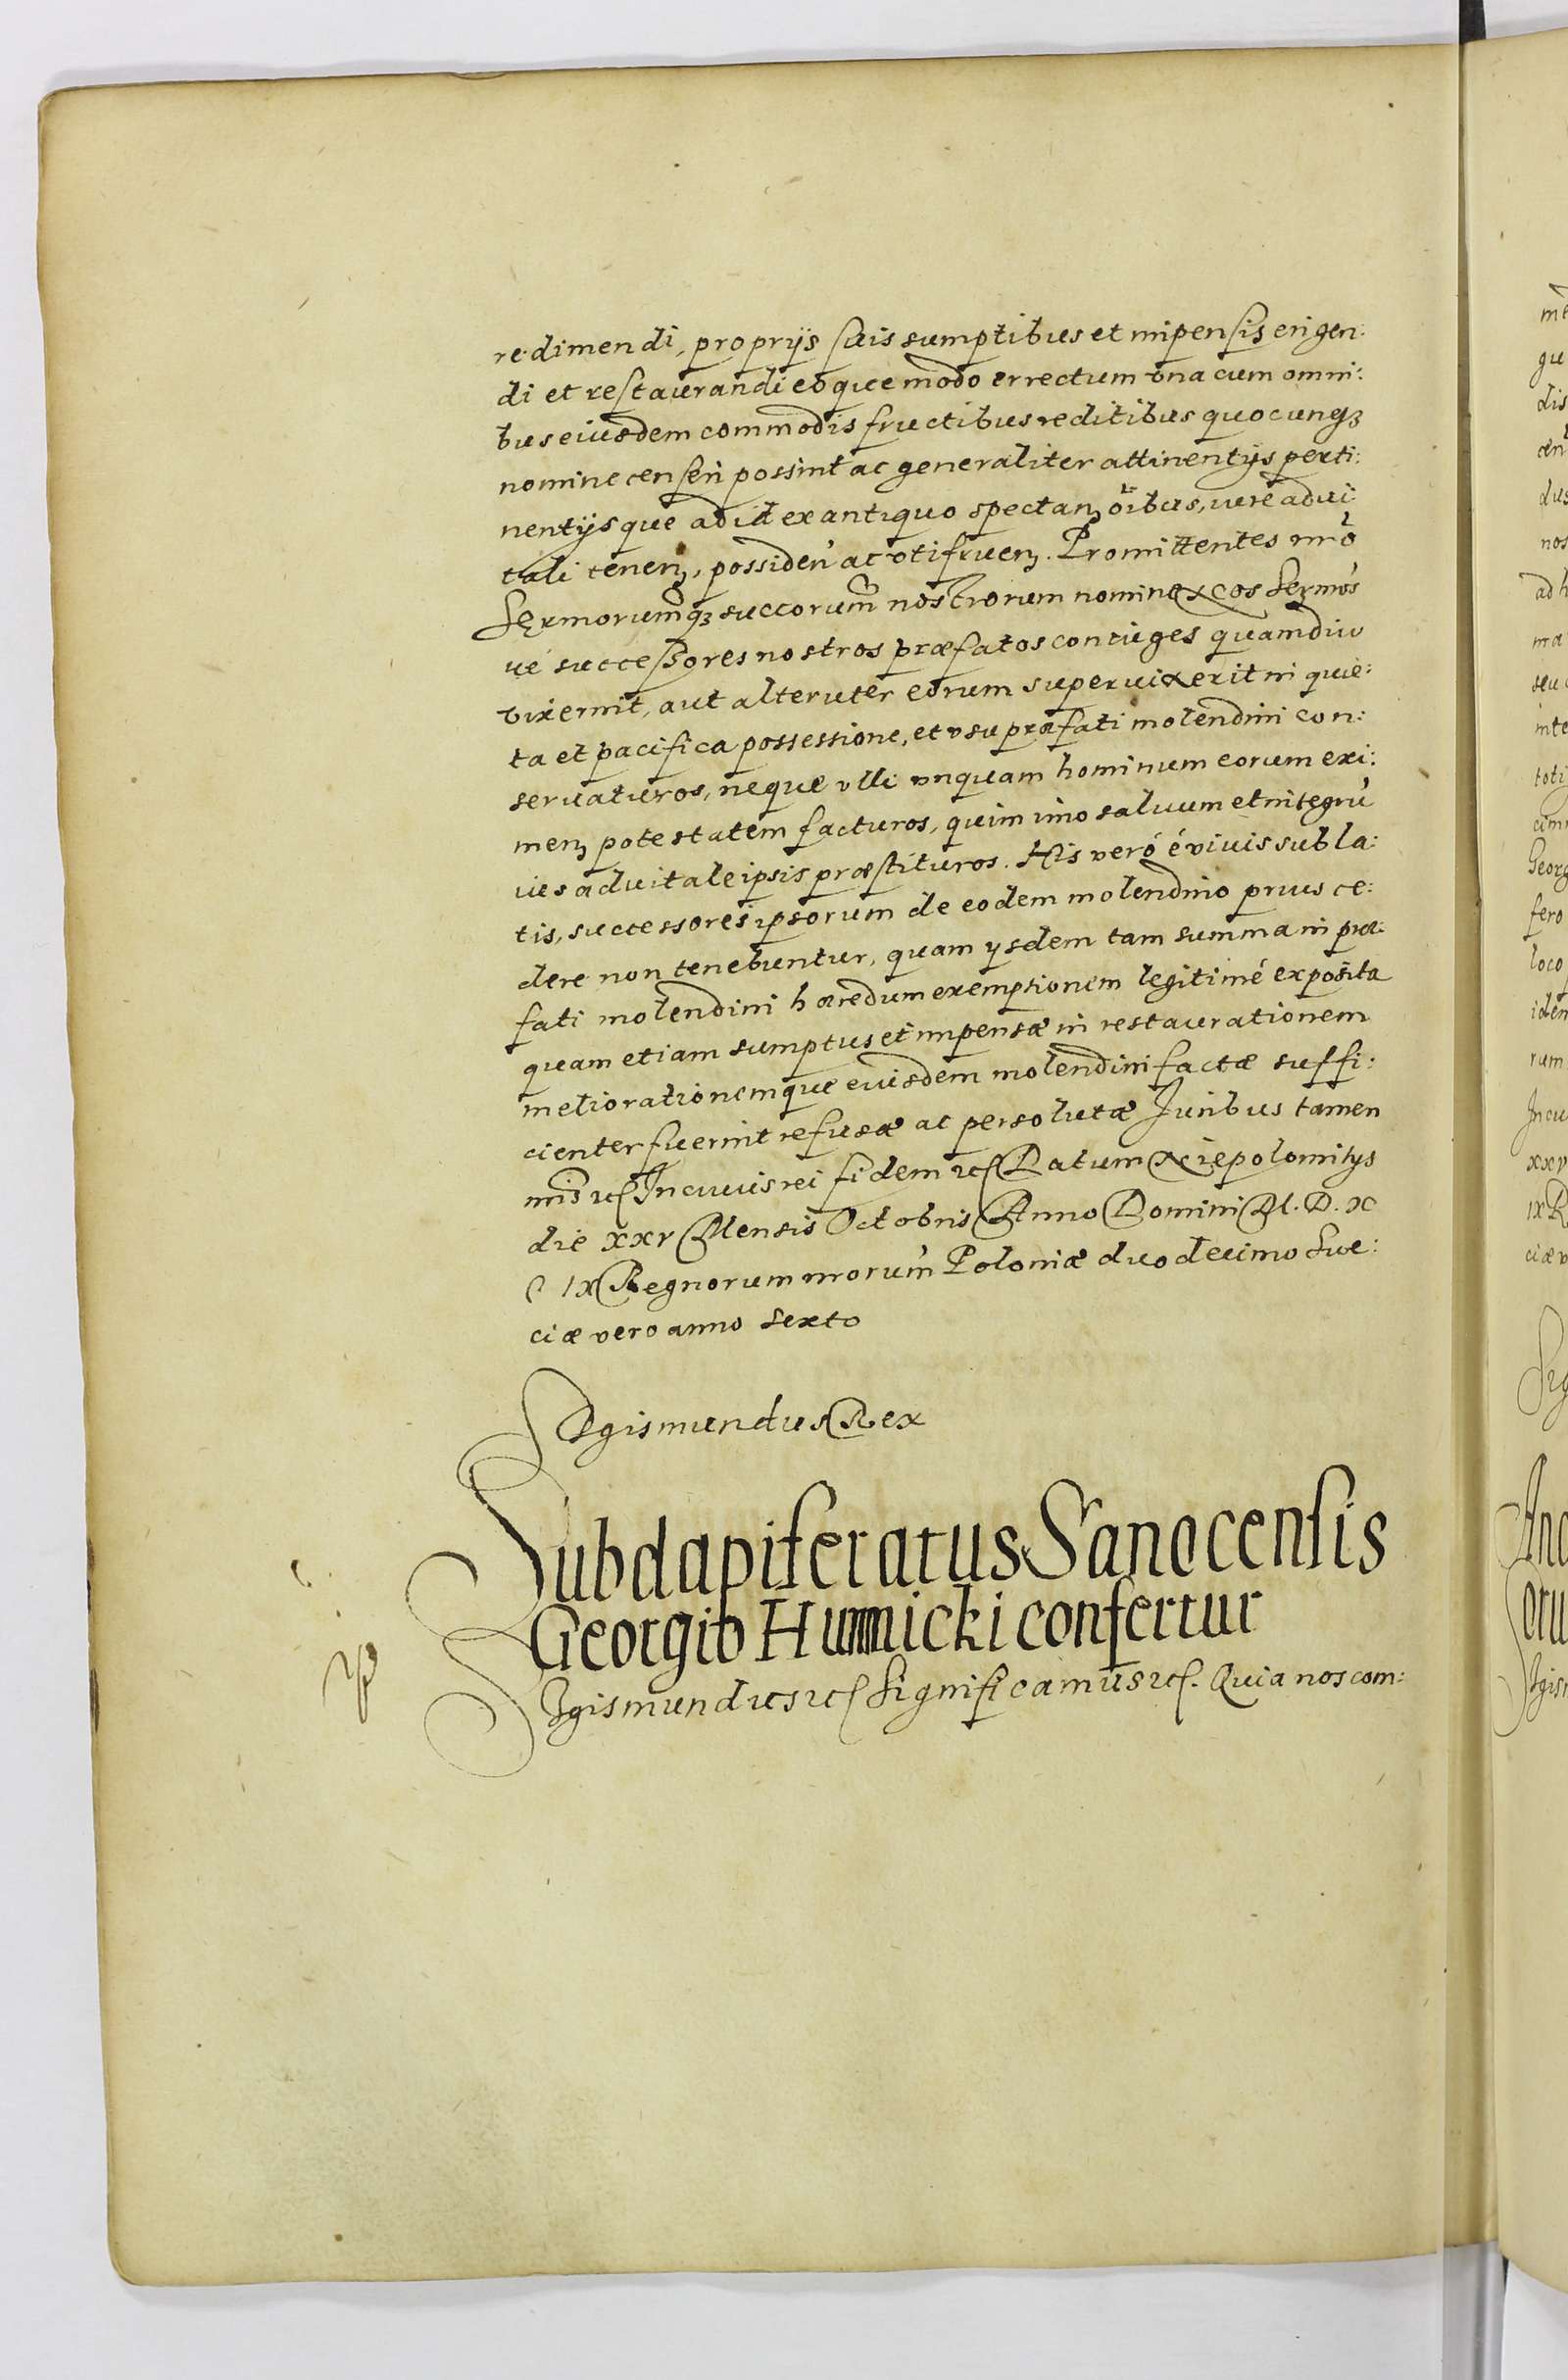 redimendi, proprijs suis sumptibus et impensis erigen:
di et restaurandi eoque modo errectum vna cum omni:
bus eiusdem commodis fructibus reditibus quocunqꝫ
nomine censeri possint ac generaliter attinentijs perti:
nentijsque ad id ex antiquo spectanꝫ oibus, iure adui
tali tenenꝫ, possiden ac vtifruenꝫ. Promittentes nro
Sermorumqꝫ succorum nostrorum nomine
ue successores nostros præfatos coniuges quamdiu
vixerint, aut alteruter eorum superuixerit in quie:
ta et pacifica possessione, et vsu præfati molendini con:
seruaturos, neque vlli vnquam hominum eorum exi:
menꝫ potestatem facturos, quim imo saluum et integrū
ius aduitale ipsis præstituros. His veró é viuis subla:
tis, successores ipsorum de eodem molendino prius ce:
dere non tenebuntur, quam ysdem tam summa in præ:
fati molendini hæredum exemptionem legitimé exposita
quam etiam sumptus et impensæ in restaurationem
meliorationemque eiusdem molendini factæ suffi:
cienter fuerint refusæ ac persolutæ Juribus tamen
nris etc Jn cuius rei fidem etc Datum Niepolomitys
die xxv Mensis Octobris Anno Domini M. D. X
C IX Regnorum nrorum Poloniæ duodecimo Sue:
ciæ vero anno sexto
Sgismundus Rex
Subdapiferatus Sanocensis
Georgio Humnicki confertur
Sgismundus etc Significamus etc. Quia nos com: